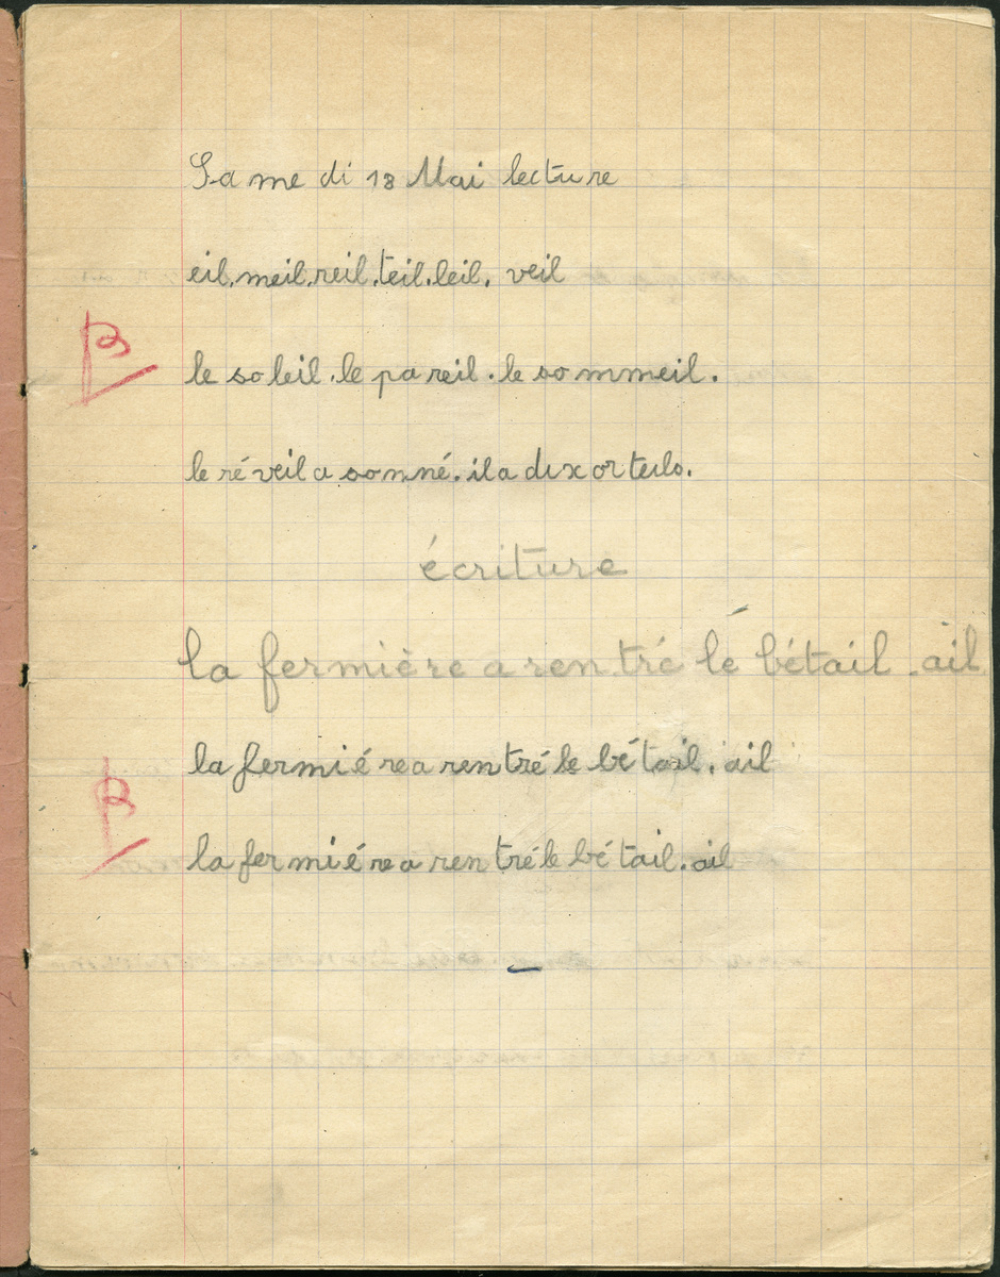 Sa me di 18 Mai lecture
eil, meil, reil, teil, leil, veil
B
le so leil. le pa reil. le so mmeil.
le ré veil a sonné. il a dix or teils.
écriture
la fermière a ren tré le bétail. ail
la fermié re a ren tré le bé tail. ail
B
la fer mié re a ren tré le bé tail. ail